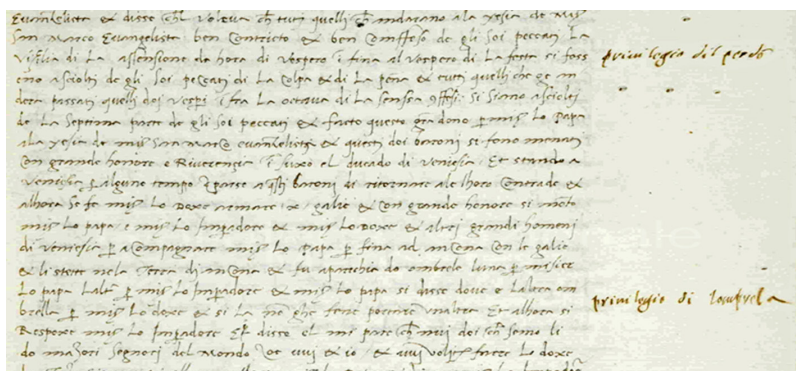 Evanɠelista & disse ch'l voleva ch tuti quelli ch andarano ala ɠesia de Mis
San Marco Evangelista ben Contricto & ben Confesso de gli Soi peccati La
Viɠilia di La assensione da hora di Vespero ī fina al Vespero di La festa si foss
eno asciolti de gli Soi peccati di La Colpa & di La pena & tutti quelli che ge an
dera passati quelli doi Vespi ī fra La octava di La sensa si Siano asciolti
de La Septima parte de gli Soi peccati & facto questo gran dono p mis Lo Papa
ala ɠesia de mis San Marco evangelista & questi doi baroni si fono menati
Con grande honore & Riverenzia ī suxo el ducado di Veniesia Et stando a
Veniesia p alguno tempo parse a baroni di ritornare ale lhoro Contrade &
alhora Se fe mis Lo Doxe armare x galie & Con grande honore si
mis Lo papa e mis Lo Imperadore & mis Lo Doxe & altri grandi homeni
di Veniesia p aCompagnare mis Lo Papa p fina ad ancona Con le galie
& li stete nela Terra di ancona & fu aparechia do ombrele Luna p misier
Lo papa Laltra p mis Lo Imperadore & mis Lo papa si disse dove e Laltra om
brella p mis Lo doxe & si La ne ghe fene portare unaltra Et alhora si
Respoxe mis Lo Imperadore disse el mi pare ch nui doi semo li
do mazori Segnori del Mondo & io &  farete Lo doxe
privilegio dil perdo
privilegio di Lombrela